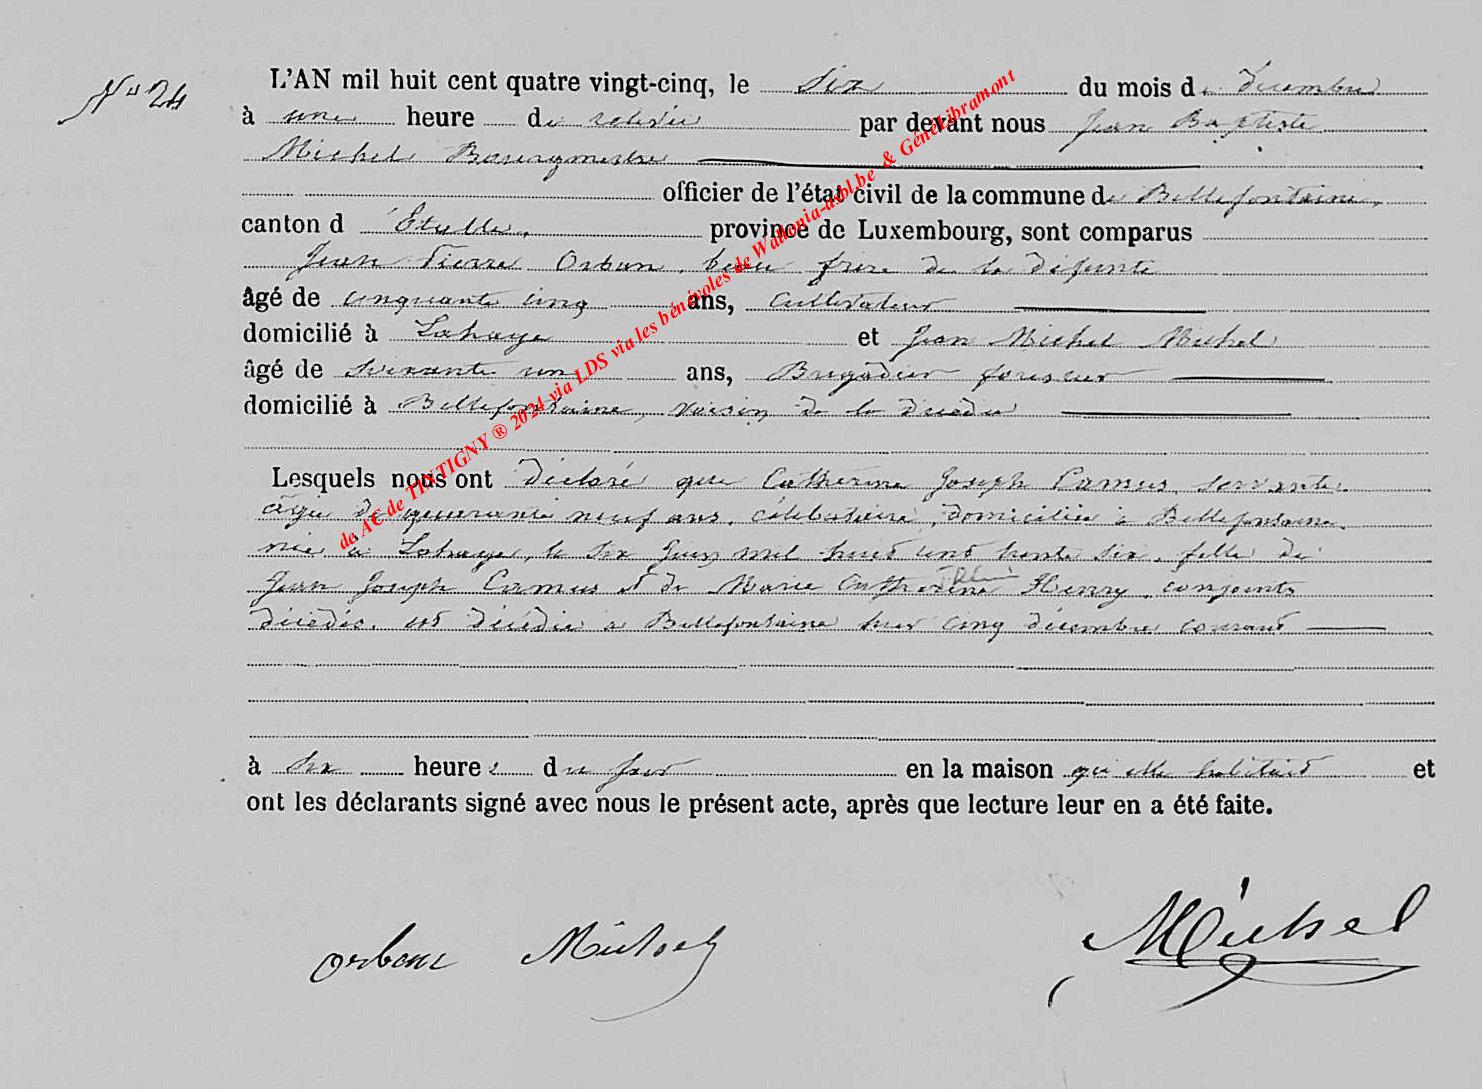 N° 24
L'AN mil huit cent quatre vingt-cinq, le six du mois de décembre
à une heure de relevée par devant nous Jean Baptiste
Michel Bourgmestre
officier de l'état civil de la commune de Bellefontaine,
canton d'Etalle, province de Luxembourg, sont comparus
Jean Pierre Orban, beau frère de la défunte
âgé de cinquante cinq ans, cultivateur
domicilié à Lahage et Jean Michel Michel
âgé de soixante un ans, Brigadier forestier
domicilié à Bellefontaine, voisin de la décédée
Lesquels nous ont déclaré que Catherine Joseph Camus, servante,
âgée de quarante neuf ans, célibataire, domiciliée à Bellefontaine,
née à Lahage, le six juin mil huit cent trente six, fille de
Jean Joseph Camus et de Marie Catherine Henry, conjoints
décédés, est décédée à Bellefontaine hier cinq décembre courant
à six heures du jour en la maison qu'elle habitait et
ont les déclarants signé avec nous le présent acte, après que lecture leur en a été faite.
orban Michel Michel
de AC de TINTIGNY ® 2024 via LDS via les bénévoles de Wallonia-asbl.be & GénéLibramont